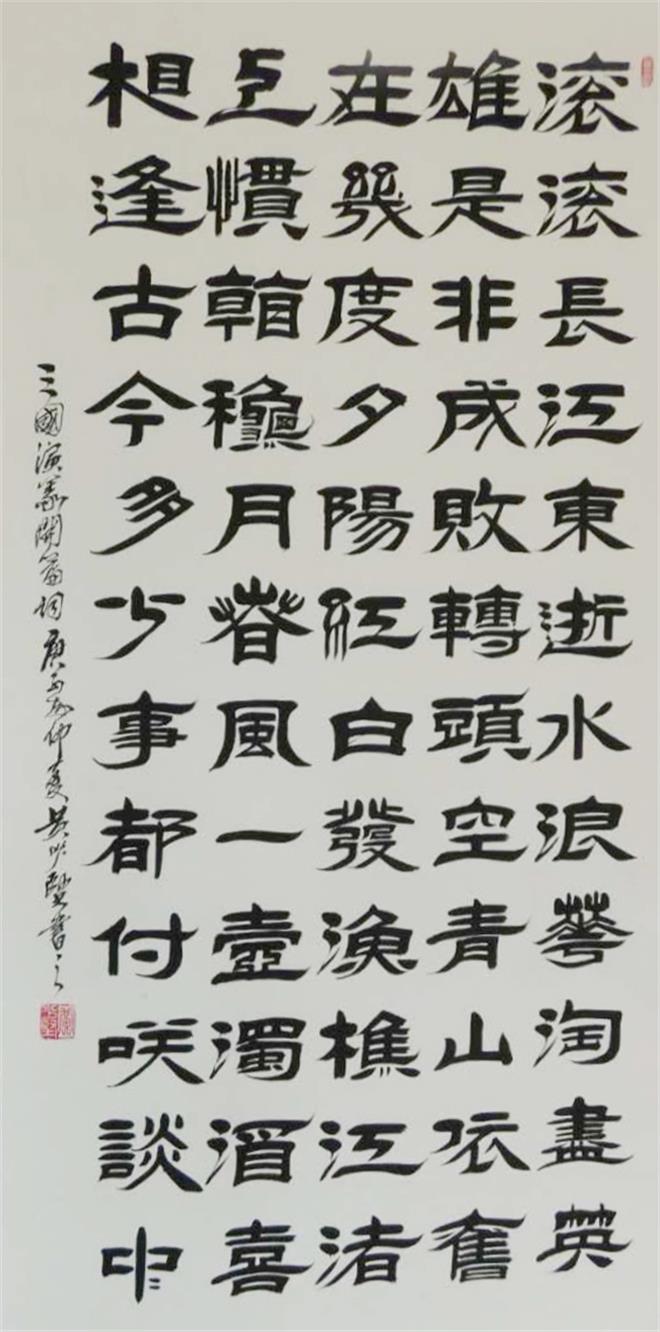 滚滚長江東逝水浪華淘盡英
雄是非成敗轉頭空青山依舊
在幾度夕陽紅白發漁樵江渚
上慣看穐月春風一壺濁酒喜
相逢古今多少事都付咲談中
三國演義開篇詞庚子年仲夏吳以賢書之